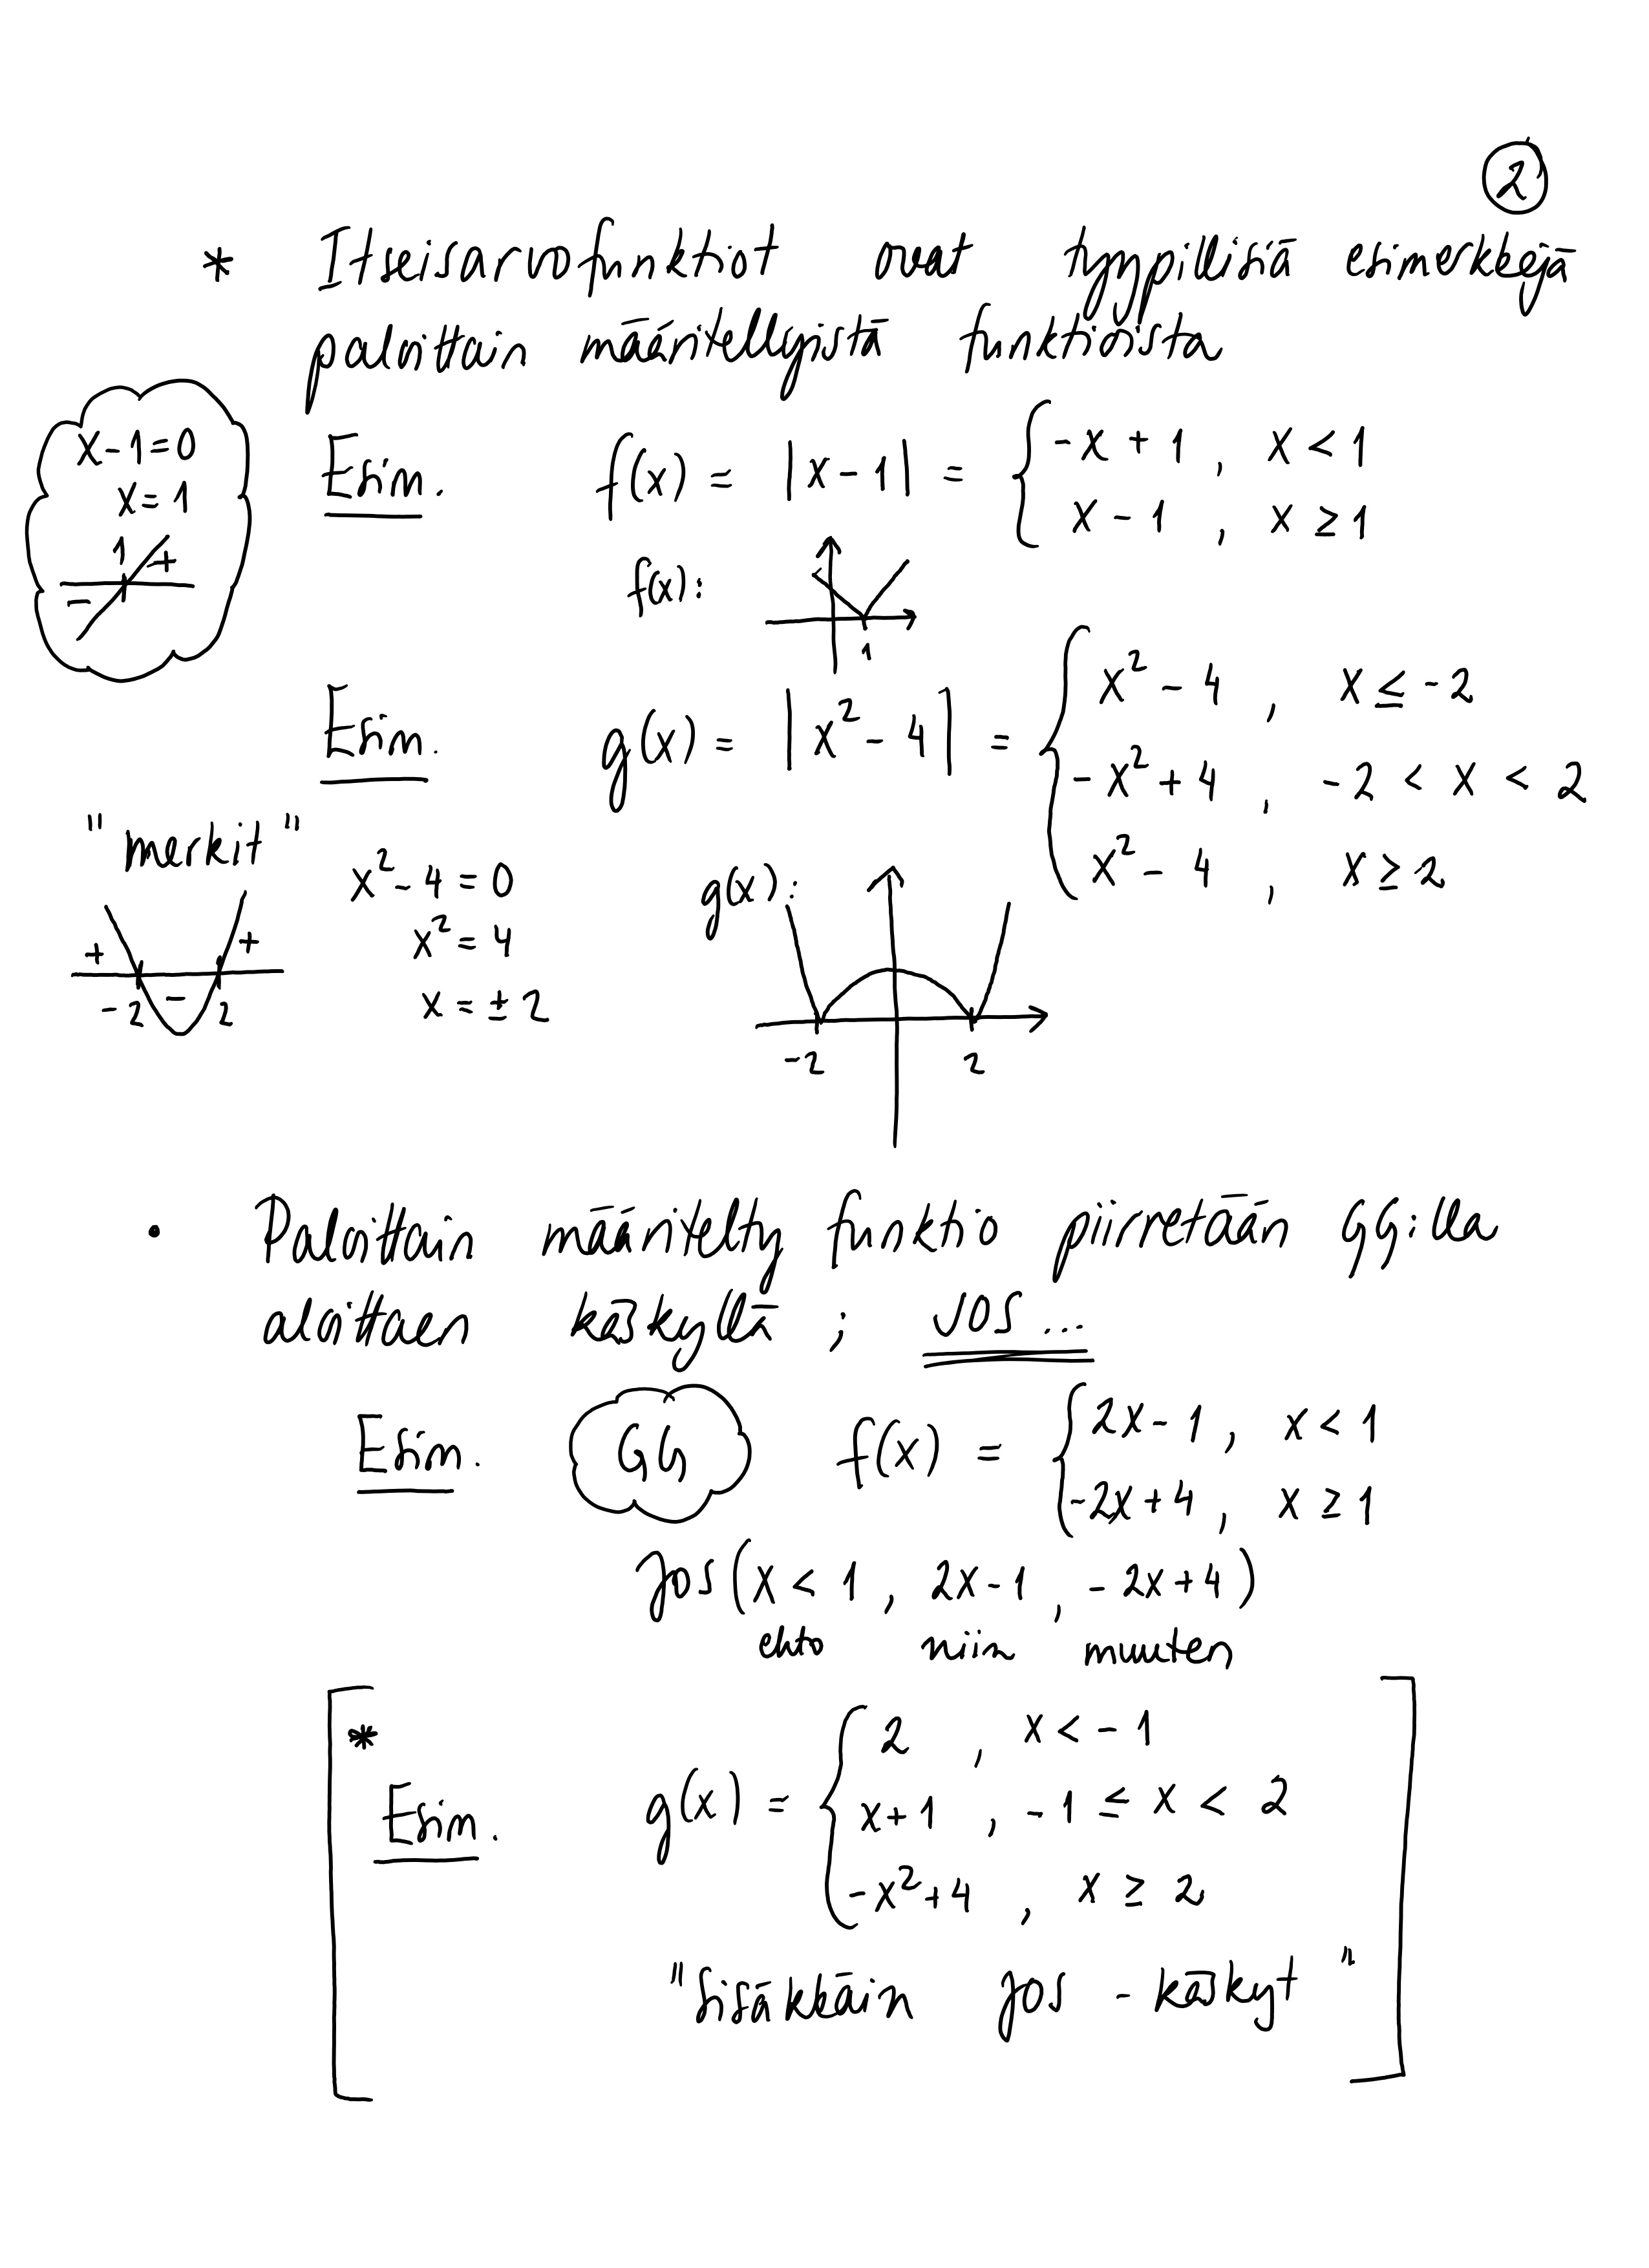 2
* Itseisarvofunktiot ovat tyypillisiä esimerkkejä
paloittain määritellyistä funktioista
x-1=0
x=1
1 +
-
Esim. f(x) = |x-1| = { -x+1 , x < 1
x-1 , x ≥ 1
f(x):
1
Esim. g(x) = |x²-4| = { x²-4 , x ≤ -2
-x²+4 , -2 < x < 2
x²-4 , x ≥ 2
"merkit"
+ +
-2 - 2
x²-4=0
x²=4
x=±2
g(x):
-2 2
• Paloittain määritelty funktio piirretään GG:lla
aloittaen käskyllä ; JOS...
Esim. GG f(x) = { 2x-1 , x < 1
-2x+4 , x ≥ 1
Jos(x < 1 , 2x-1 , -2x+4)
ehto niin muuten
*
Esim. g(x) = { 2 , x < -1
x+1 , -1 ≤ x < 2
-x²+4 , x ≥ 2
"Sisäkkäin Jos - käskyt"